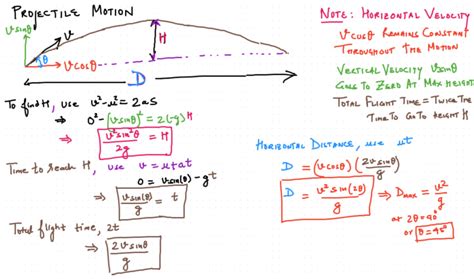 PROJECTILE MOTION
vsinθ
v
θ
vcosθ
H
D
To find H, use v²-u²=2as
⇒ 0²-(vsinθ)²=2(-g)H
⇒ v²sin²θ/2g = H
Time to reach H, use v=u+at
0=vsin(θ)-gt
⇒ vsin(θ)/g = t
Total flight time, 2t
⇒ 2vsinθ/g
NOTE: HORIZONTAL VELOCITY
vcosθ REMAINS CONSTANT
THROUGHOUT THE MOTION
VERTICAL VELOCITY vsinθ
GOES TO ZERO AT MAX HEIGHT
TOTAL FLIGHT TIME = TWICE THE
TIME TO GO TO HEIGHT H
HORIZONTAL DISTANCE, use ut
D = (vcosθ)(2vsinθ/g)
D = v²sin(2θ)/g ⇒ Dmax = v²/g
at 2θ=90°
or θ=45°